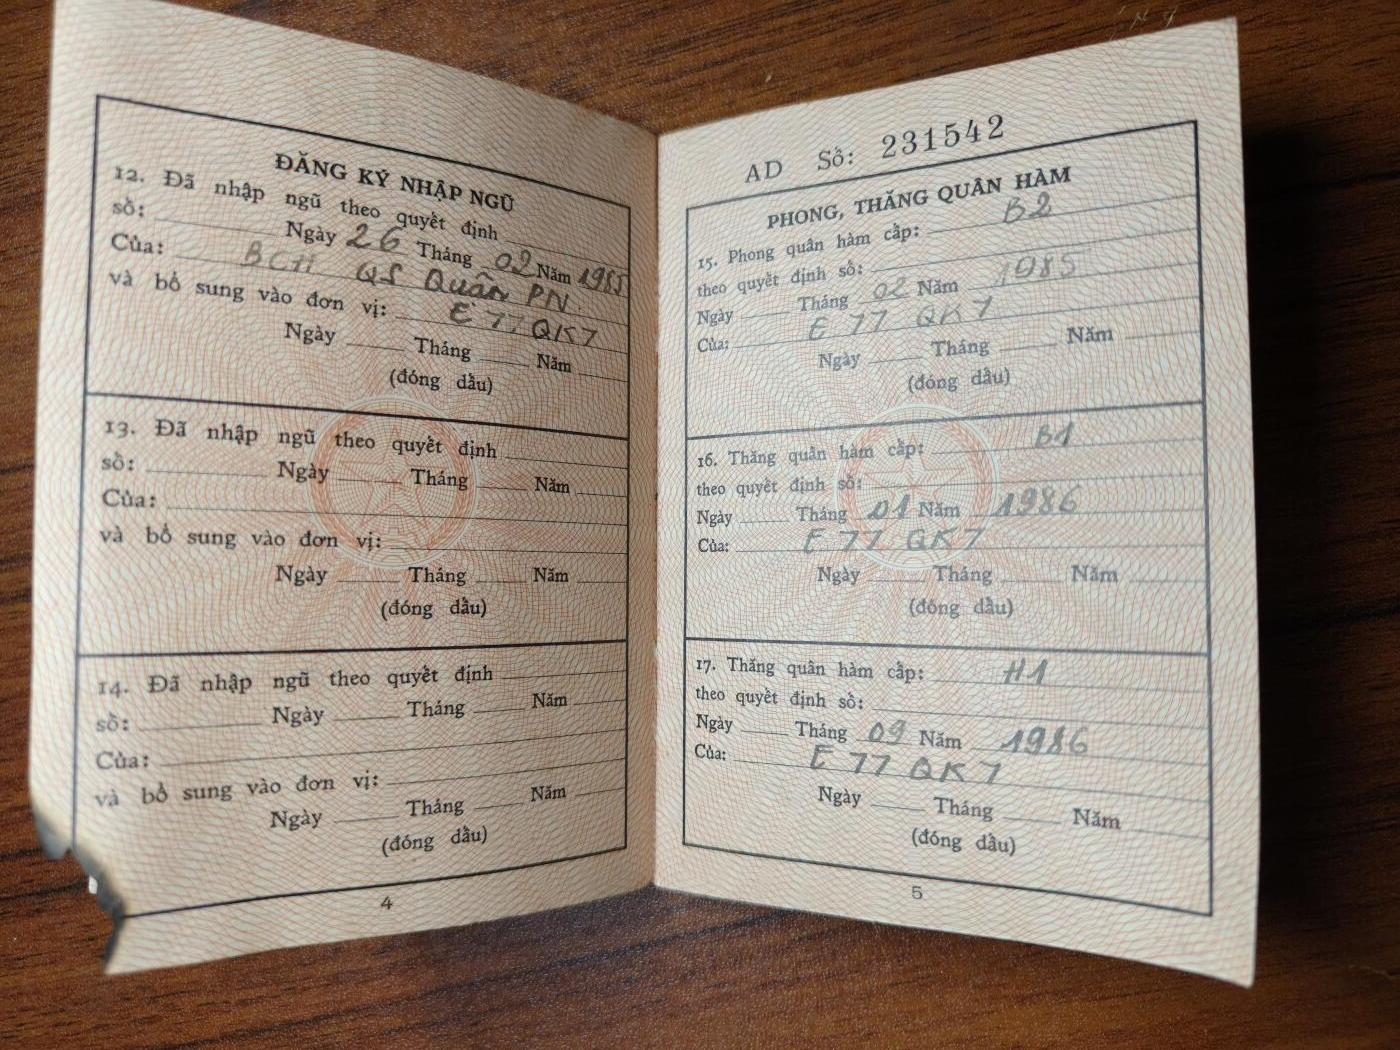 ĐĂNG KÝ NHẬP NGŨ
12. Đã nhập ngũ theo quyết định
số: Ngày 26 Tháng 02 Năm 1985
Của: BCH QS Quân PN
và bổ sung vào đơn vị: E 77 QK7
Ngày Tháng Năm
(đóng dấu)
13. Đã nhập ngũ theo quyết định
số: Ngày Tháng Năm
Của:
và bổ sung vào đơn vị:
Ngày Tháng Năm
(đóng dấu)
14. Đã nhập ngũ theo quyết định
số: Ngày Tháng Năm
Của:
và bổ sung vào đơn vị:
Ngày Tháng Năm
(đóng dấu)
4
AD Số: 231542
PHONG, THĂNG QUÂN HÀM
15. Phong quân hàm cấp: B2
theo quyết định số:
Ngày Tháng 02 Năm 1985
Của: E 77 QK7
Ngày Tháng Năm
(đóng dấu)
16. Thăng quân hàm cấp: B1
theo quyết định số:
Ngày Tháng 01 Năm 1986
Của: E 77 QK7
Ngày Tháng Năm
(đóng dấu)
17. Thăng quân hàm cấp: H1
theo quyết định số:
Ngày Tháng 09 Năm 1986
Của: E 77 QK7
Ngày Tháng Năm
(đóng dấu)
5